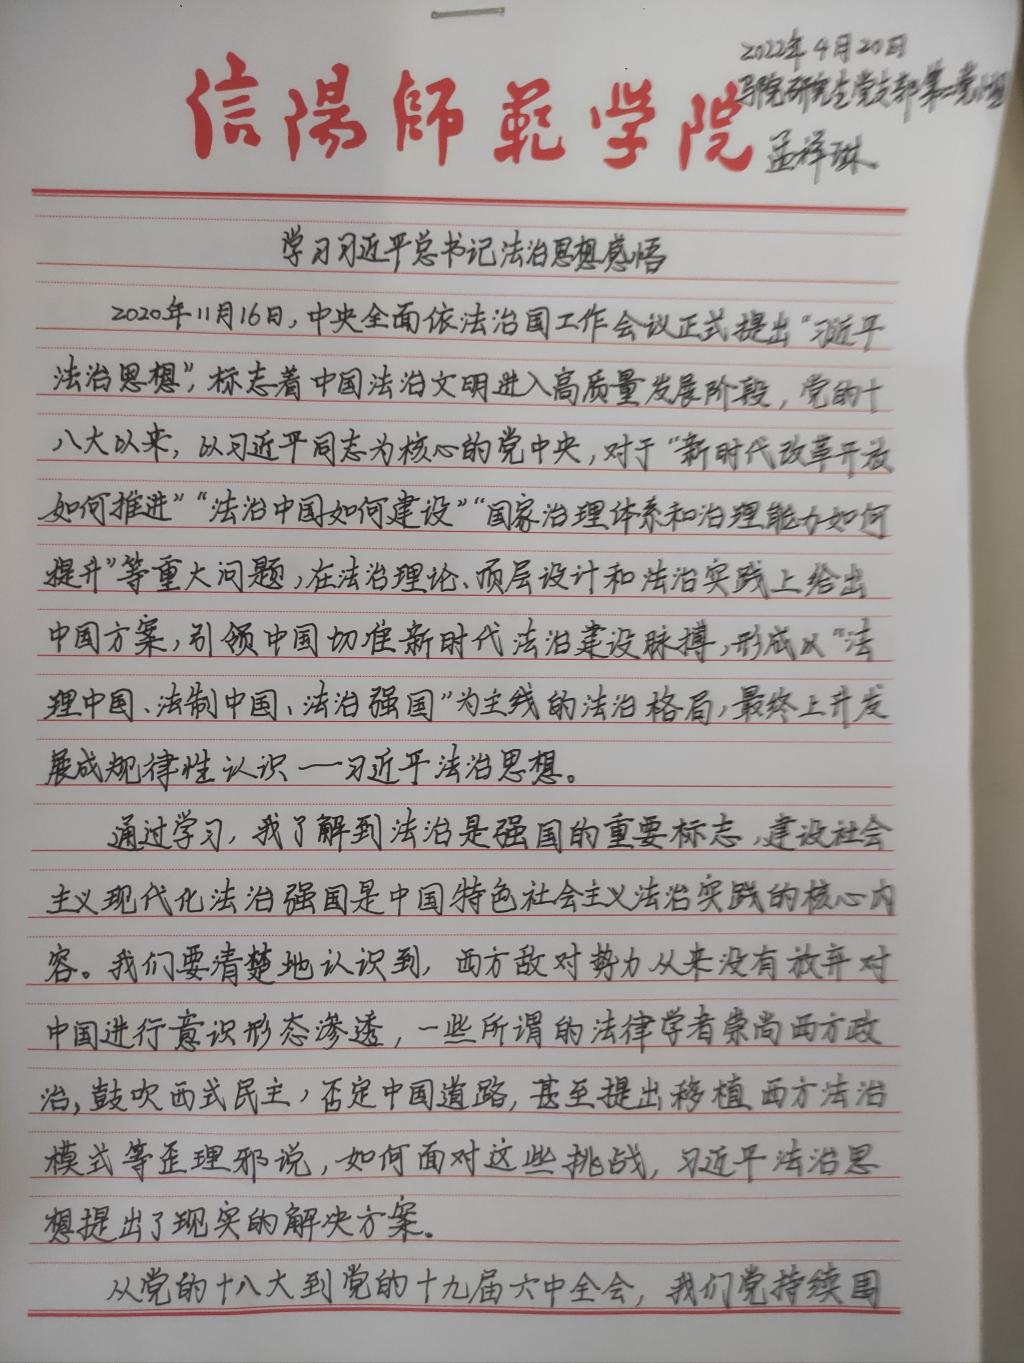 2022年4月20日
信陽師範学院
马院研究生党支部第二党小组
孟祥琳
学习习近平总书记法治思想感悟
2020年11月16日,中央全面依法治国工作会议正式提出“习近平
法治思想”,标志着中国法治文明进入高质量发展阶段,党的十
八大以来,以习近平同志为核心的党中央,对于“新时代改革开放
如何推进”“法治中国如何建设”“国家治理体系和治理能力如何
提升”等重大问题,在法治理论、顶层设计和法治实践上给出
中国方案,引领中国切准新时代法治建设脉搏,形成以“法
理中国、法制中国、法治强国”为主线的法治格局,最终上升发
展成规律性认识——习近平法治思想。
通过学习,我了解到法治是强国的重要标志,建设社会
主义现代化法治强国是中国特色社会主义法治实践的核心内
容。我们要清楚地认识到,西方敌对势力从来没有放弃对
中国进行意识形态渗透,一些所谓的法律学者崇尚西方政
治,鼓吹西式民主,否定中国道路,甚至提出移植西方法治
模式等歪理邪说,如何面对这些挑战,习近平法治思
想提出了现实的解决方案。
从党的十八大到党的十九届六中全会,我们党持续围